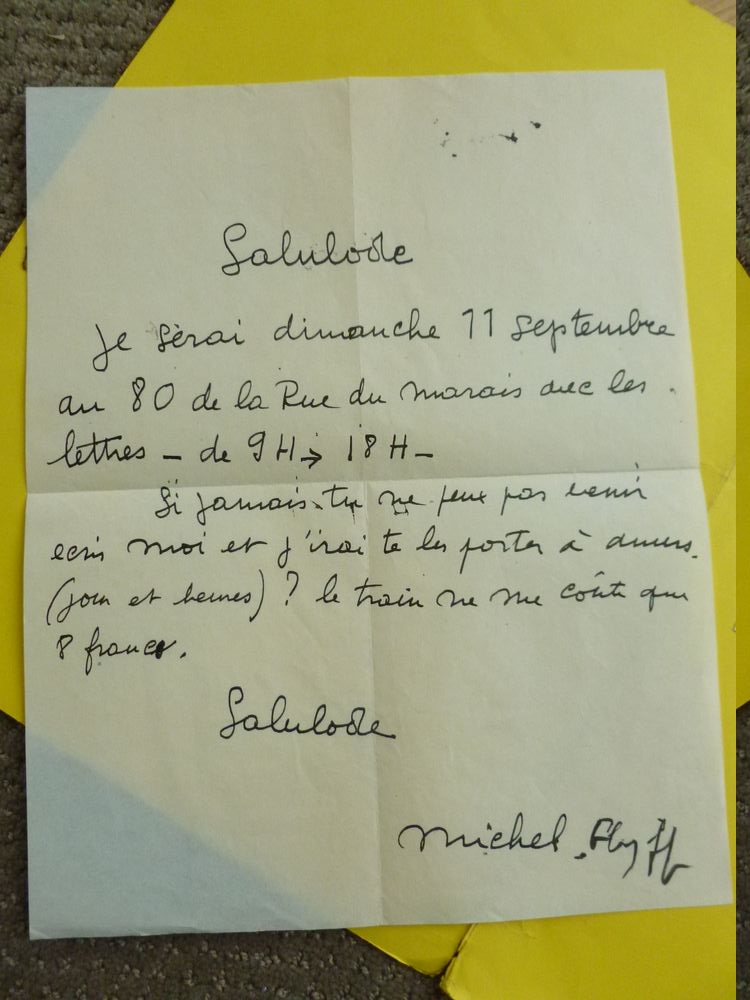 Salulode
Je serai dimanche 11 Septembre
au 80 de la Rue du marais avec les
lettres - de 9H → 18H -
Si jamais tu ne peux pas venir
ecris moi et j'irai te les porter à
(jour et heures) ? le train ne me coûte que
8 francs.
Salulode
Michel